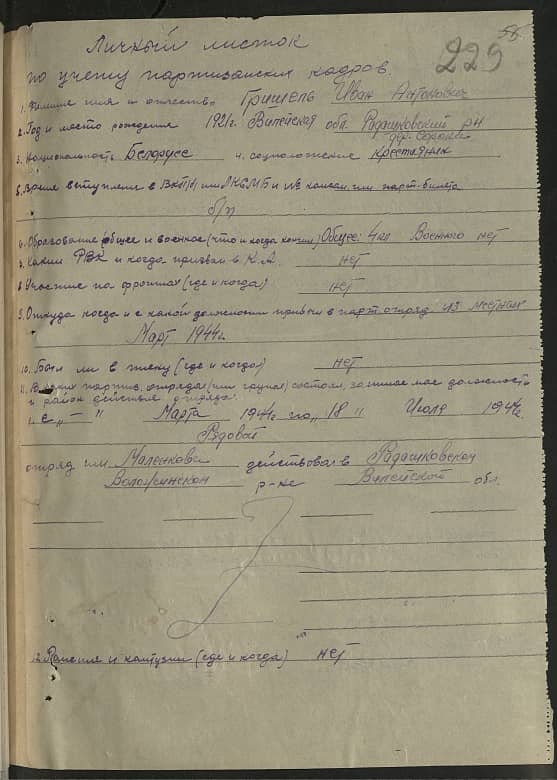 55
229
Личный листок
по учету партизанских кадров
1. Фамилия имя и отчество Гришель Иван Антонович
2. Год и место рождения 1921г. Вилейская обл. Радашковский р-н
дер.
3. Национальность Белорусс 4. соцположение Крестьянин
5. Время вступления в ВКП(б) или ЛКСМБ и № кандид. или парт. билета
б/п
6. Образование общее и военное (что и когда кончил) Общее: 4 кл Военного нет
7. Каким РВК и когда призван в К.А. нет
8. Участие на фронтах (где и когда) нет
9. Откуда когда и с какой должности прибыл в парт. отряд из местных
Март 1944г.
10. Был ли в плену (где и когда) нет
11. В каких партиз. отрядах (или группах) состоял, занимаемая должность
и район действия отряда:
1. с „ — " Марта 1944г. по „ 18 " Июля 1944г.
Рядовой
отряд им. Маленкова действовал в Радашковском
Воложинском р-не Вилейской обл.
12. Ранения и контузии (где и когда) нет